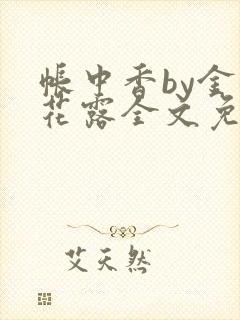 帐中香by金
花露全文免
艾天然